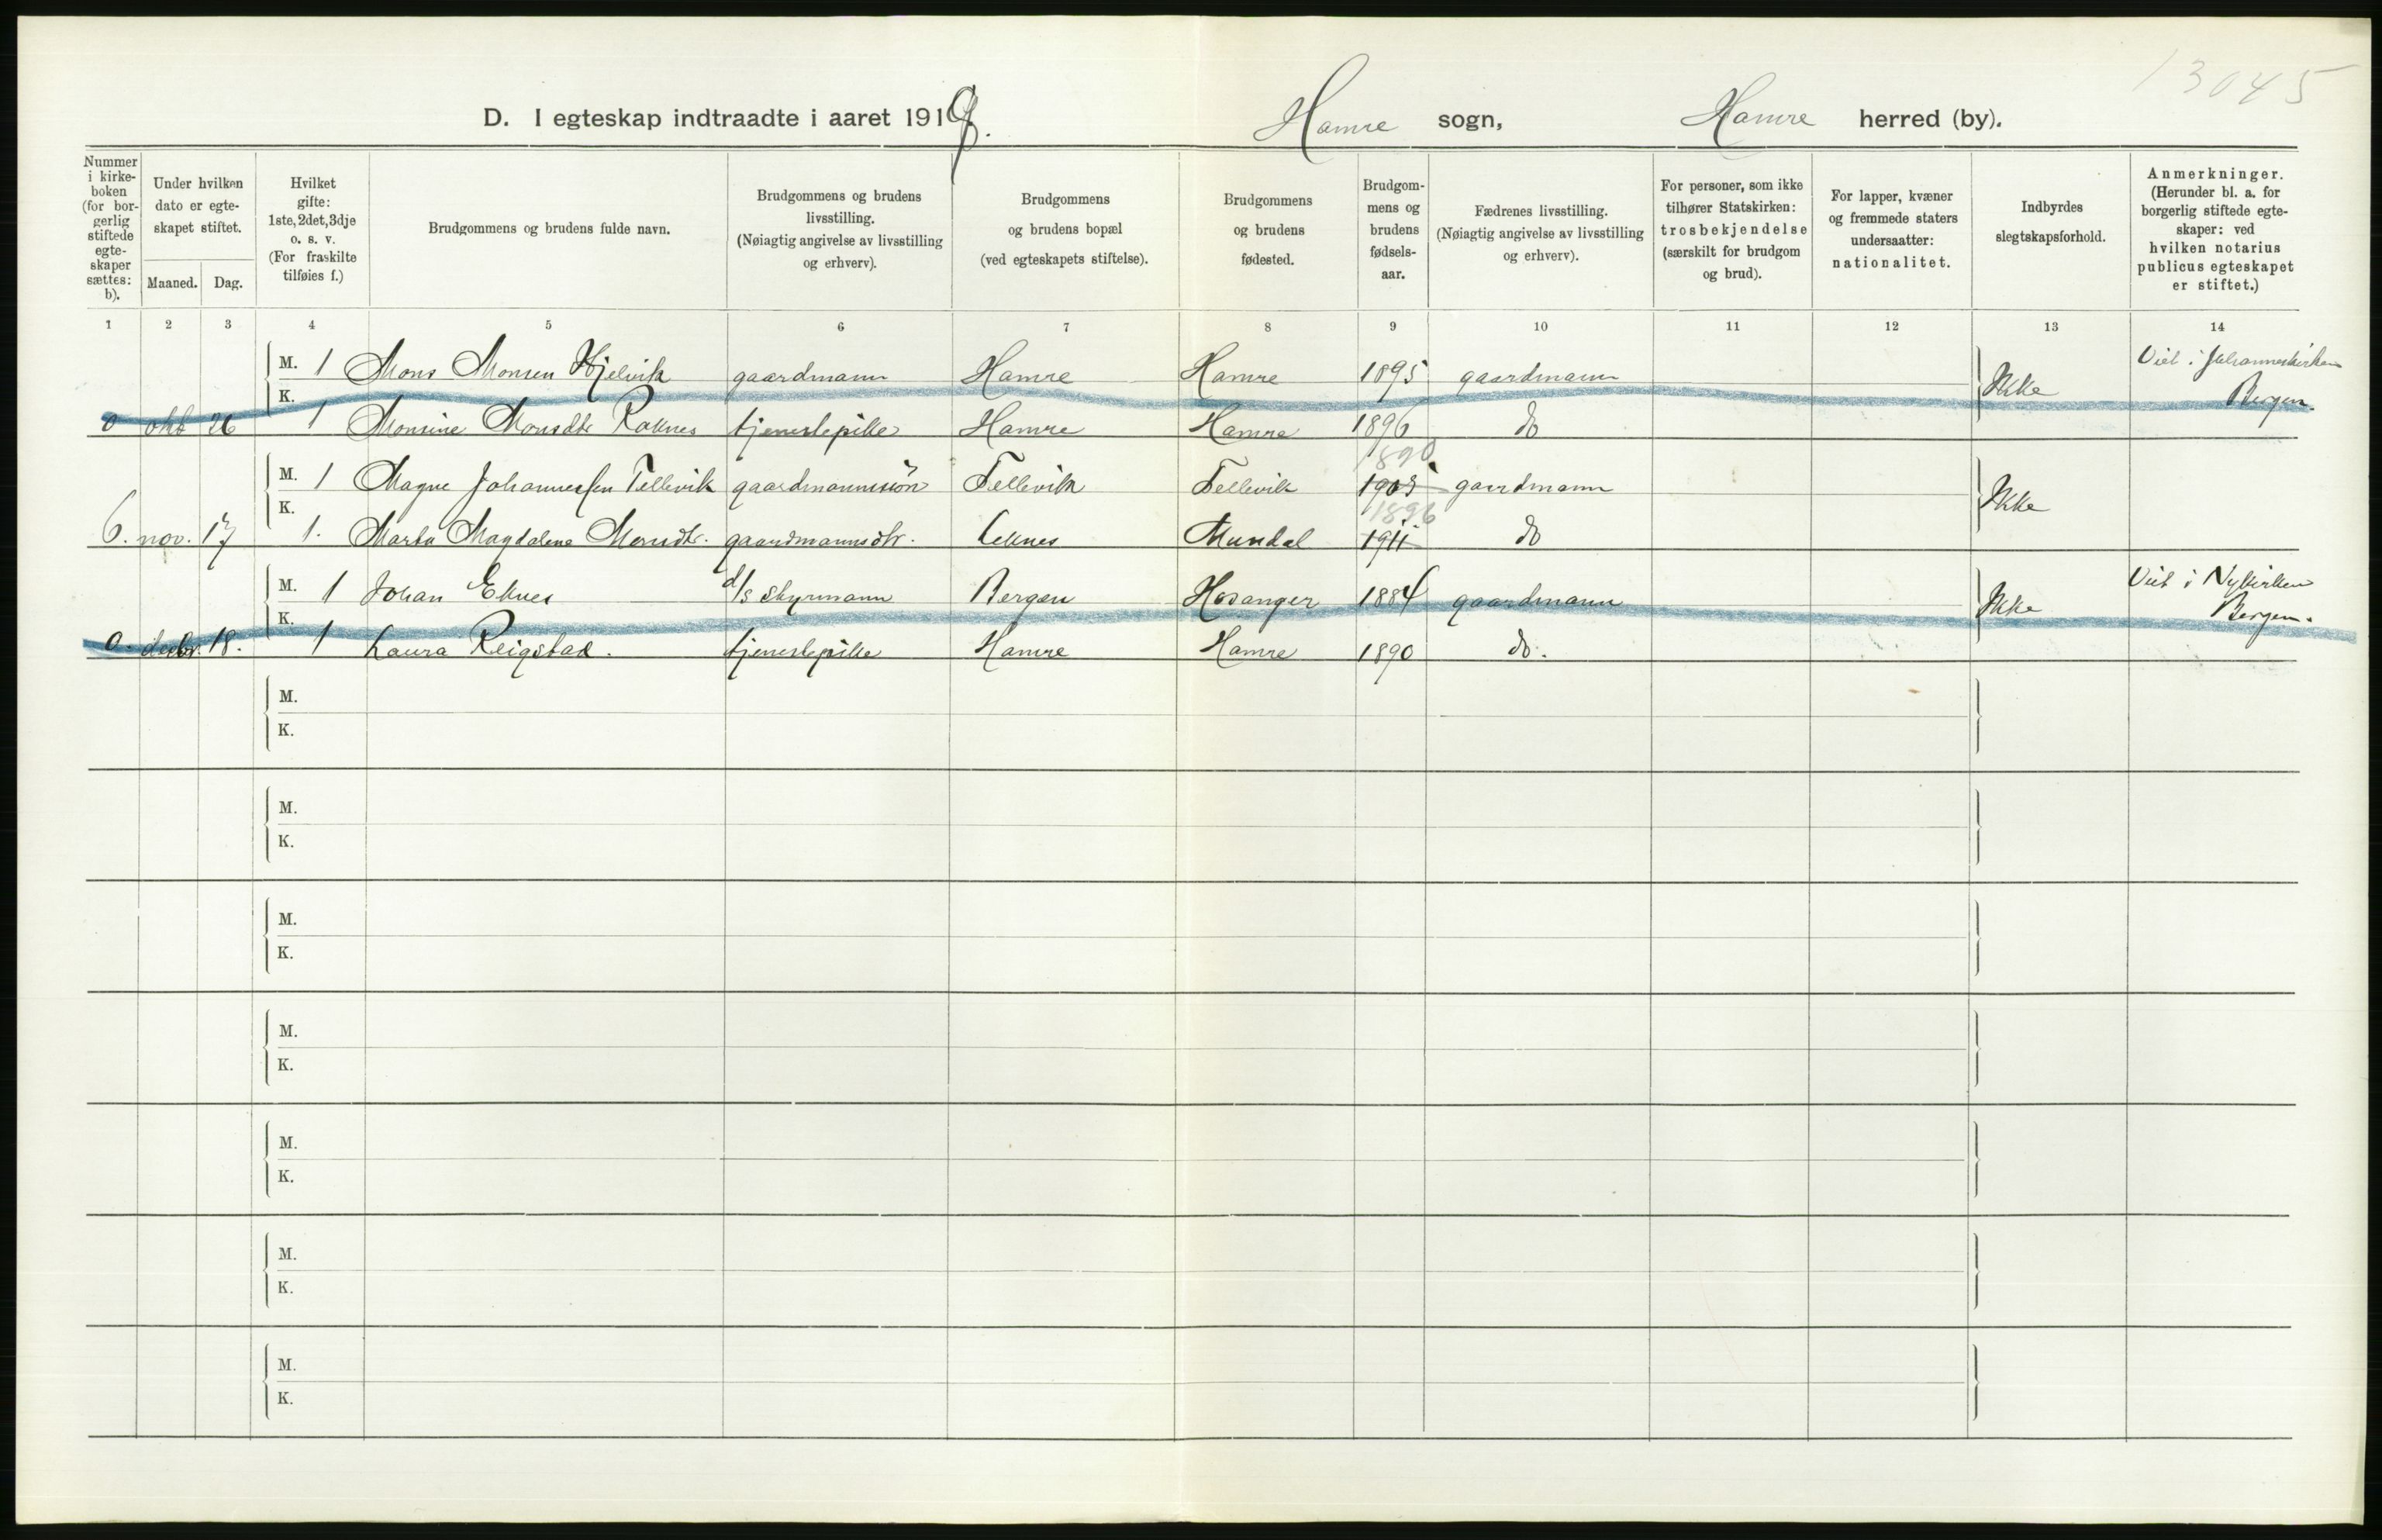 13045
D. I egteskap indtraadte i aaret 1919. Hamre sogn, Hamre herred (by).
Nummer i kirke- boken (for bor- gerlig stiftede egte- skaper sættes: b).
Under hvilken dato er egte- skapet stiftet.
Maaned. Dag.
Hvilket gifte: 1ste, 2det, 3dje o. s. v. (For fraskilte tilføies f.)
Brudgommens og brudens fulde navn.
Brudgommens og brudens livsstilling. (Nøiagtig angivelse av livsstilling og erhverv).
Brudgommens og brudens bopæl (ved egteskapets stiftelse).
Brudgommens og brudens fødested.
Brudgom- mens og brudens fødsels- aar.
Fædrenes livsstilling. (Nøiagtig angivelse av livsstilling og erhverv).
For personer, som ikke tilhører Statskirken: trosbekjendelse (særskilt for brudgom og brud).
For lapper, kvæner og fremmede staters undersaatter: nationalitet.
Indbyrdes slegtskapsforhold.
Anmerkninger. (Herunder bl. a. for borgerlig stiftede egte- skaper: ved hvilken notarius publicus egteskapet er stiftet.)
1 2 3 4 5 6 7 8 9 10 11 12 13 14
M. 1 Mons Monsen Hjelvik gaardmann Hamre Hamre 1895 gaardmann Ikke Viet i Johanneskirken Bergen.
K.
0 okt 26 1 Monsine Monsdtr Raknes tjenestepike Hamre Hamre 1896 do
1890
M. 1 Magne Johannessen Tellevik gaardmannssön Tellevik Tellevik 1905 gaardmann Ikke
K. 1896
6. nov. 17 1. Marta Magdalena Monsdtr. gaardmannsdtr. Eknes Mundal 1911 do
M. 1 Johan Eknes d/s styrmann Bergen Hosanger 1884 gaardmann Ikke Viet i Nykirken Bergen.
K.
0. desbr. 18. 1 Laura Reigstad. tjenestepike Hamre Hamre 1890 do.
M.
K.
M.
K.
M.
K.
M.
K.
M.
K.
M.
K.
M.
K.